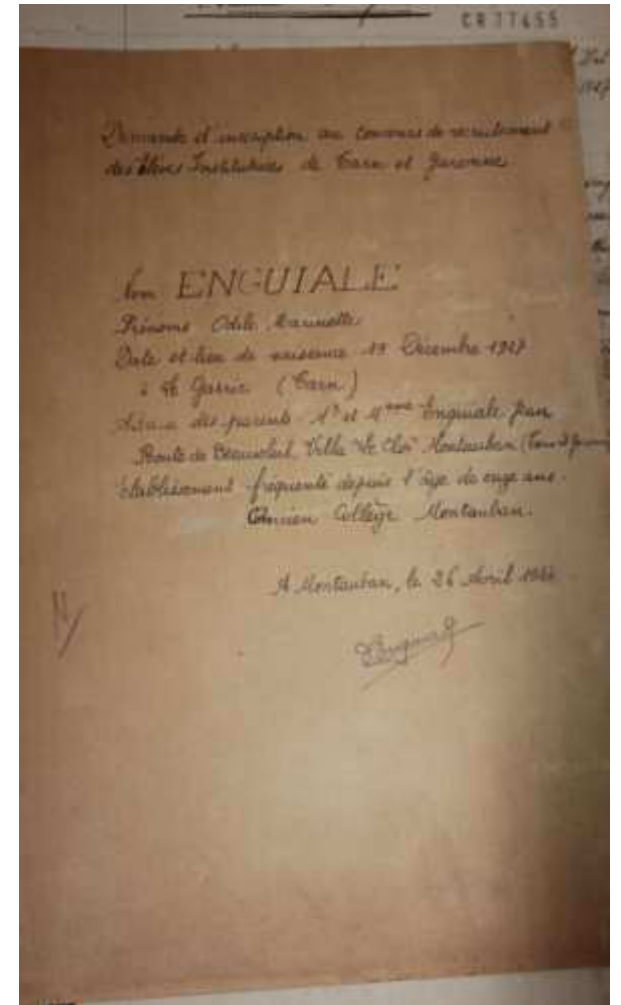 CR77455
Demande d'inscription au concours de recrutement
des Elèves Institutrices de Tarn et Garonne
Nom ENGUIALE
Prénoms Odile Mariette
Date et lieu de naissance 19 Décembre 1927
à Le Garric (Tarn)
Adresse des parents Mr et Mme Enguiale Jean
Route de Beausoleil, Villa "Le Clos" Montauban
Etablissement fréquenté depuis l'âge de onze ans.
Ancien Collège Montauban.
A Montauban, le 26 Avril